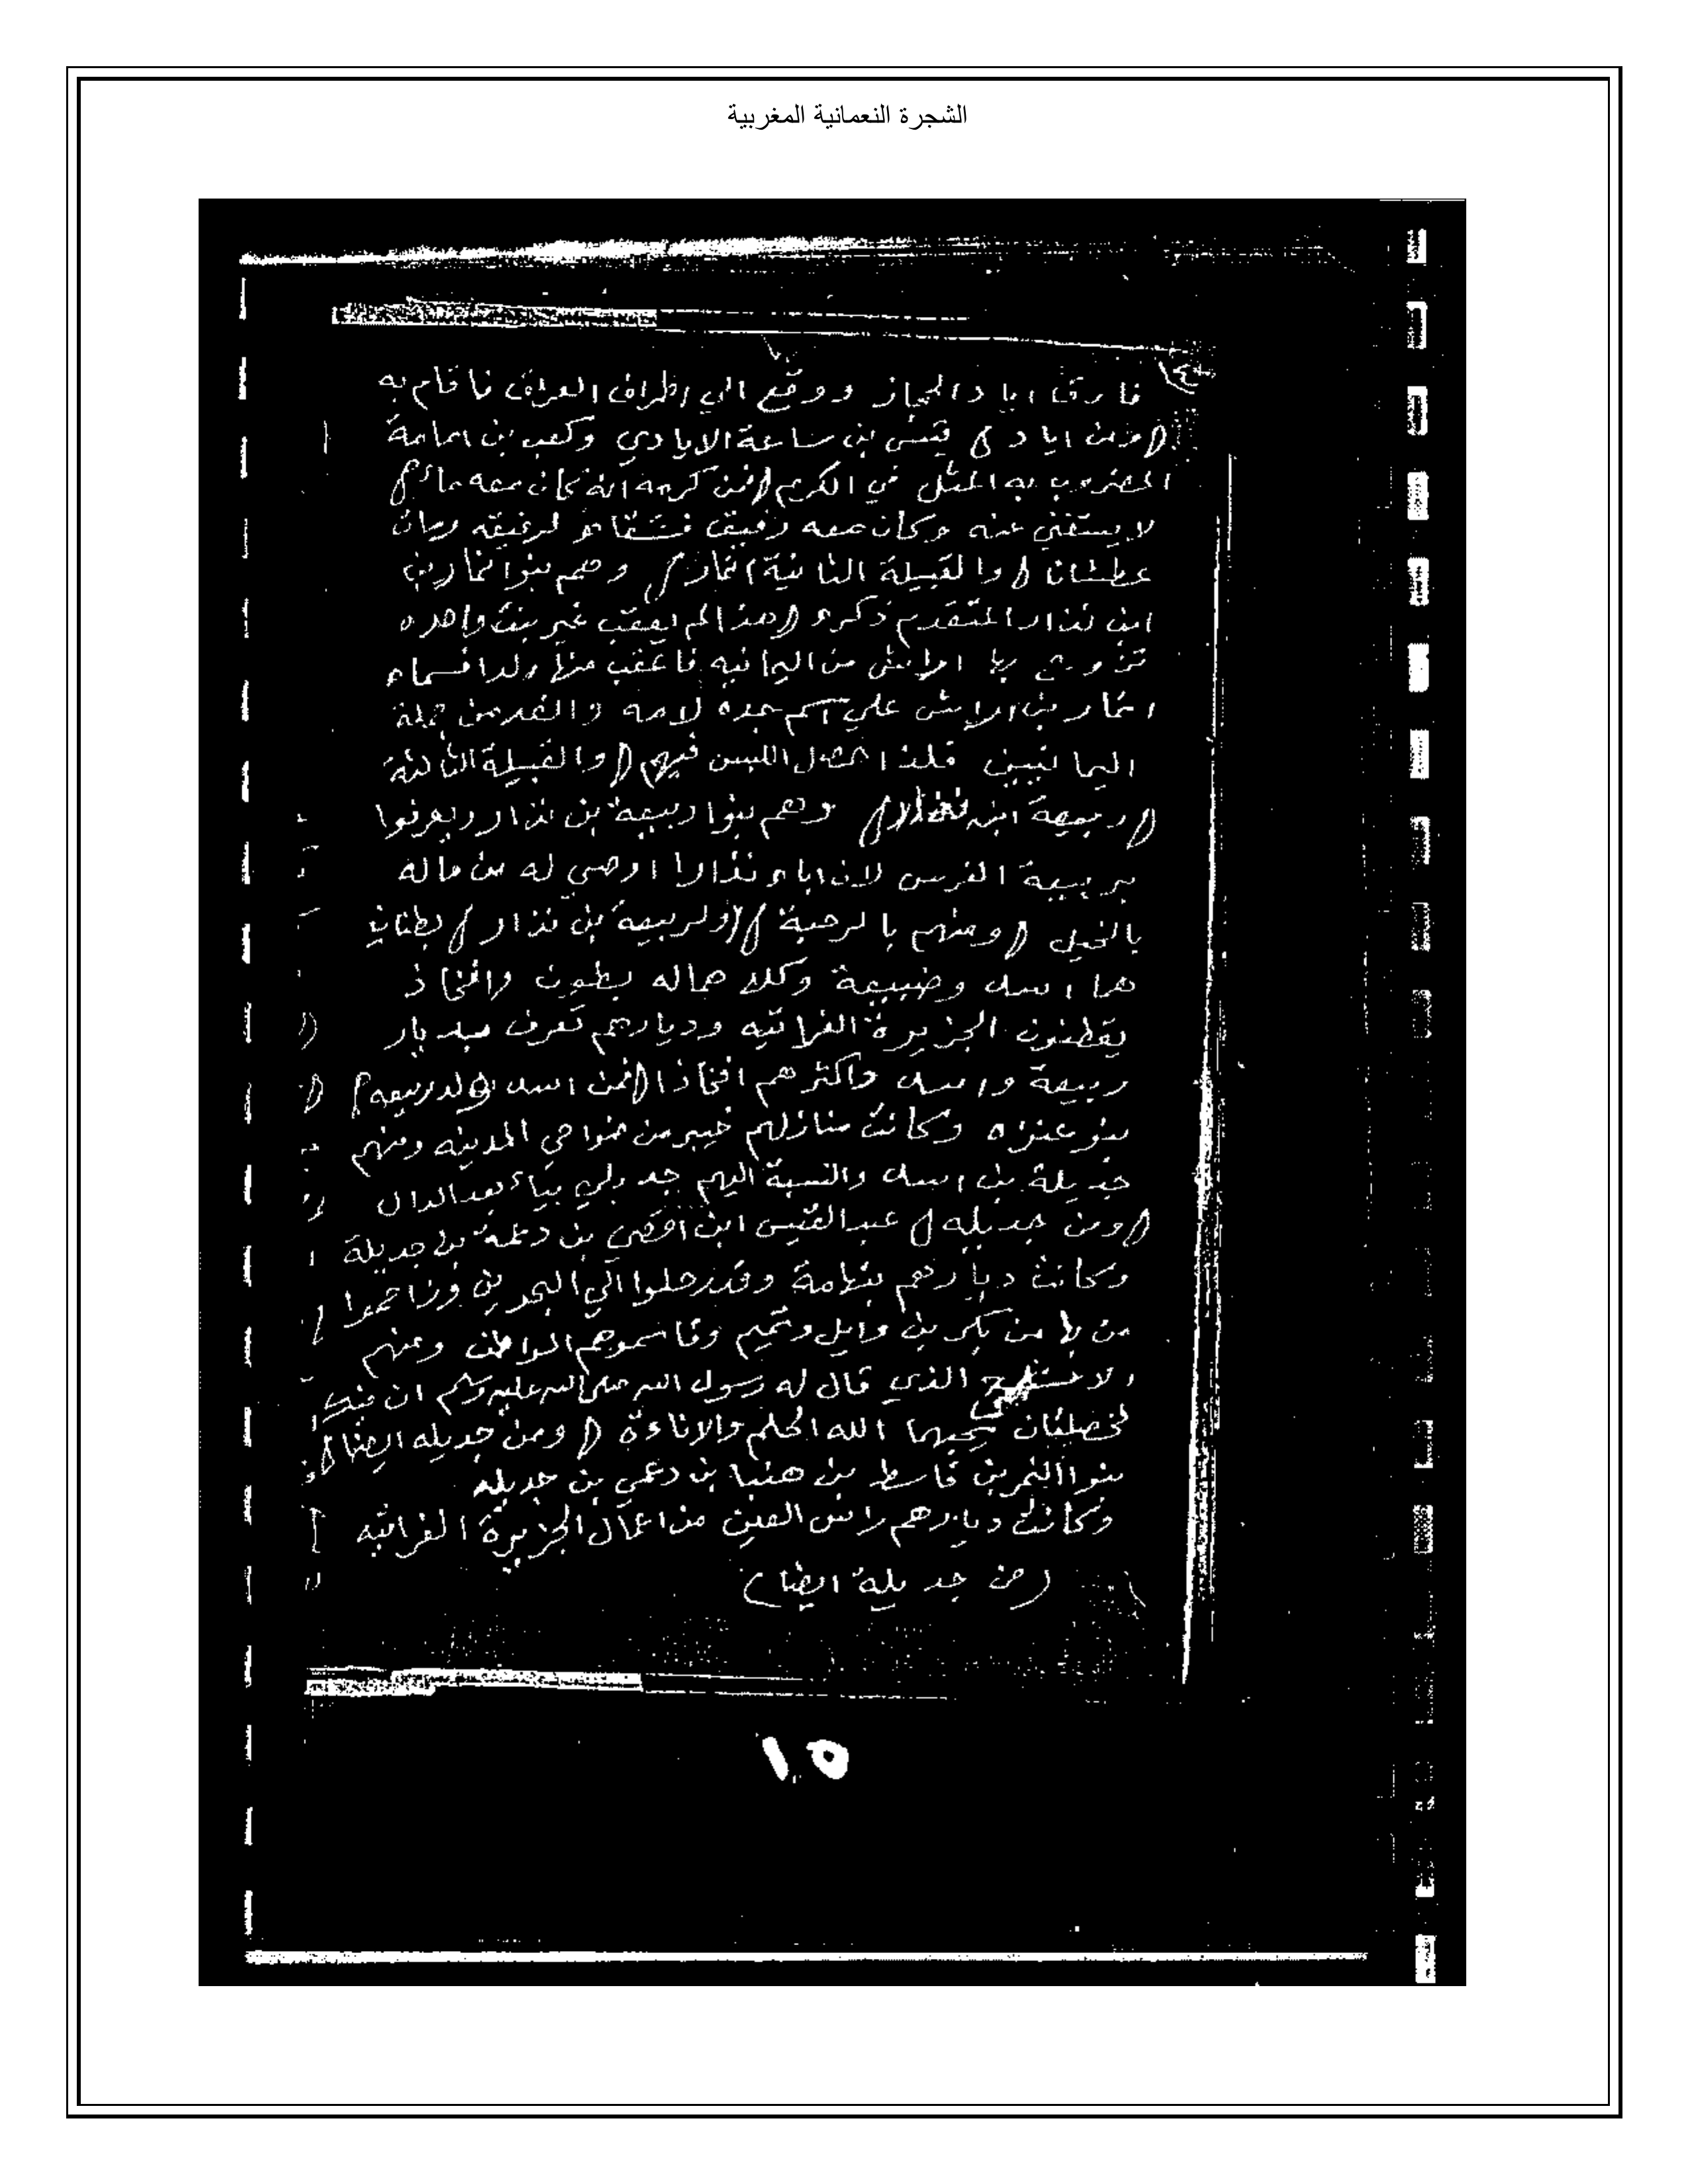 الشجرة النعمانية المغربية
فارق اياد الحجاز ووقع الي اطراف العراق فاقام به
(ومن اياد) قيس بن ساعدة الايادي وكعب بن امامة
المضروب به المثل في الكرم (فمن كرمه انه كان معه ماء)
لا يستغني عنه وكان معه رفيق فسقاه لرفيقه ومات
عطشانا (والقبيلة الثانية) انمار) وهم بنوا انمار بن
ابن نذار المتقدم ذكره (هذا لم يعقب غير بنت واحده
تزوج بها اراش من اليمانيه فاعقب منها ولدا فسماه
انمار بن اراش علي اسم جده لامه من جملة
اليمانيين فلذا حصل اللبس فيهم (والقبيلة الثالثة
(ربيعة ابن وهم بنوا ربيعة بن نذار ويعرفوا
بربيعة الفرس لان اباه نذارا اوصي له من ماله
بالخيل (ومنهم بالرحبة) (ولربيعة بن نذار) بطنان
هما اسد وضبيعة وكلاهما له بطون وافخاذ
يقطنون الجزيرة الفراتيه وديارهم تعرف بديار
ربيعة واسد واكثرهم افخاذا (فمن اسد ربيعه)
بنو عنزه وكانت منازلهم خيبر من ضواحي المدينه ومنهم
جديلة بن اسد والنسبة اليهم جديلي بياء بعد الدال
(ومن جديله) عبد القيس ابن افصي بن دعمة بن جديلة
وكانت ديارهم بتهامة وقد رحلوا الي البحرين وزاحموا
من بها من بكر بن وايل وتميم وقاسموهم المواطن ومنهم
الاشج الذي قال له رسول الله صلى الله عليه وسلم ان فيك
لخصلتان يحبهما الله الحلم والاناءة (ومن جديله ايضا)
بنوا النمر بن قاسط بن هنبا بن دعمي بن جديله
وكانت ديارهم راس العين من اعمال الجزيرة الفراتيه
(من جديلة ايضا)
١٥